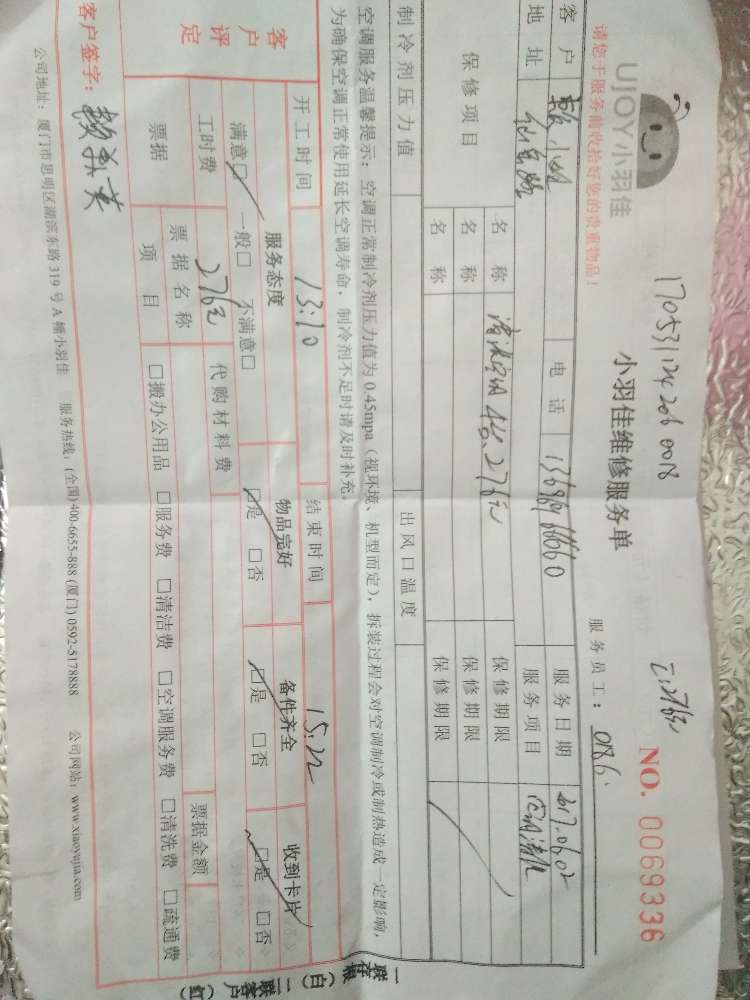 UJOY小羽佳
170531124206 0018
小羽佳维修服务单
NO. 0069336
请您于服务前收拾好您的贵重物品！
服务员工：0186
客户 电话 服务日期 2017.06.02
地址 服务项目 空调清洗
保修项目 名称 保修期限
名称 保修期限
名称 保修期限
制冷剂压力值 出风口温度
空调服务温馨提示：空调正常制冷剂压力值为 0.45mpa（视环境、机型而定），拆装过程会对空调制冷或制热造成一定影响，
为确保空调正常使用延长空调寿命，制冷剂不足时请及时补充。
开工时间 13:10 结束时间 15:22
客户评定 服务态度 物品完好 备件齐全 收到卡片
满意□ 一般□ 不满意□ □是 □否 □是 □否 □是 □否
工时费 276元 代购材料费
票据 票据名称 票据金额
项目 □搬办公用品 □服务费 □清洁费 □空调服务费 □清洗费 □疏通费
客户签字：
公司地址：厦门市思明区湖滨东路 319 号 A 幢小羽佳 服务热线：(全国)400-6655-888 (厦门) 0592-5178888 公司网站：www.xiaoyujia.com
一联存根（白）二联客户（红）